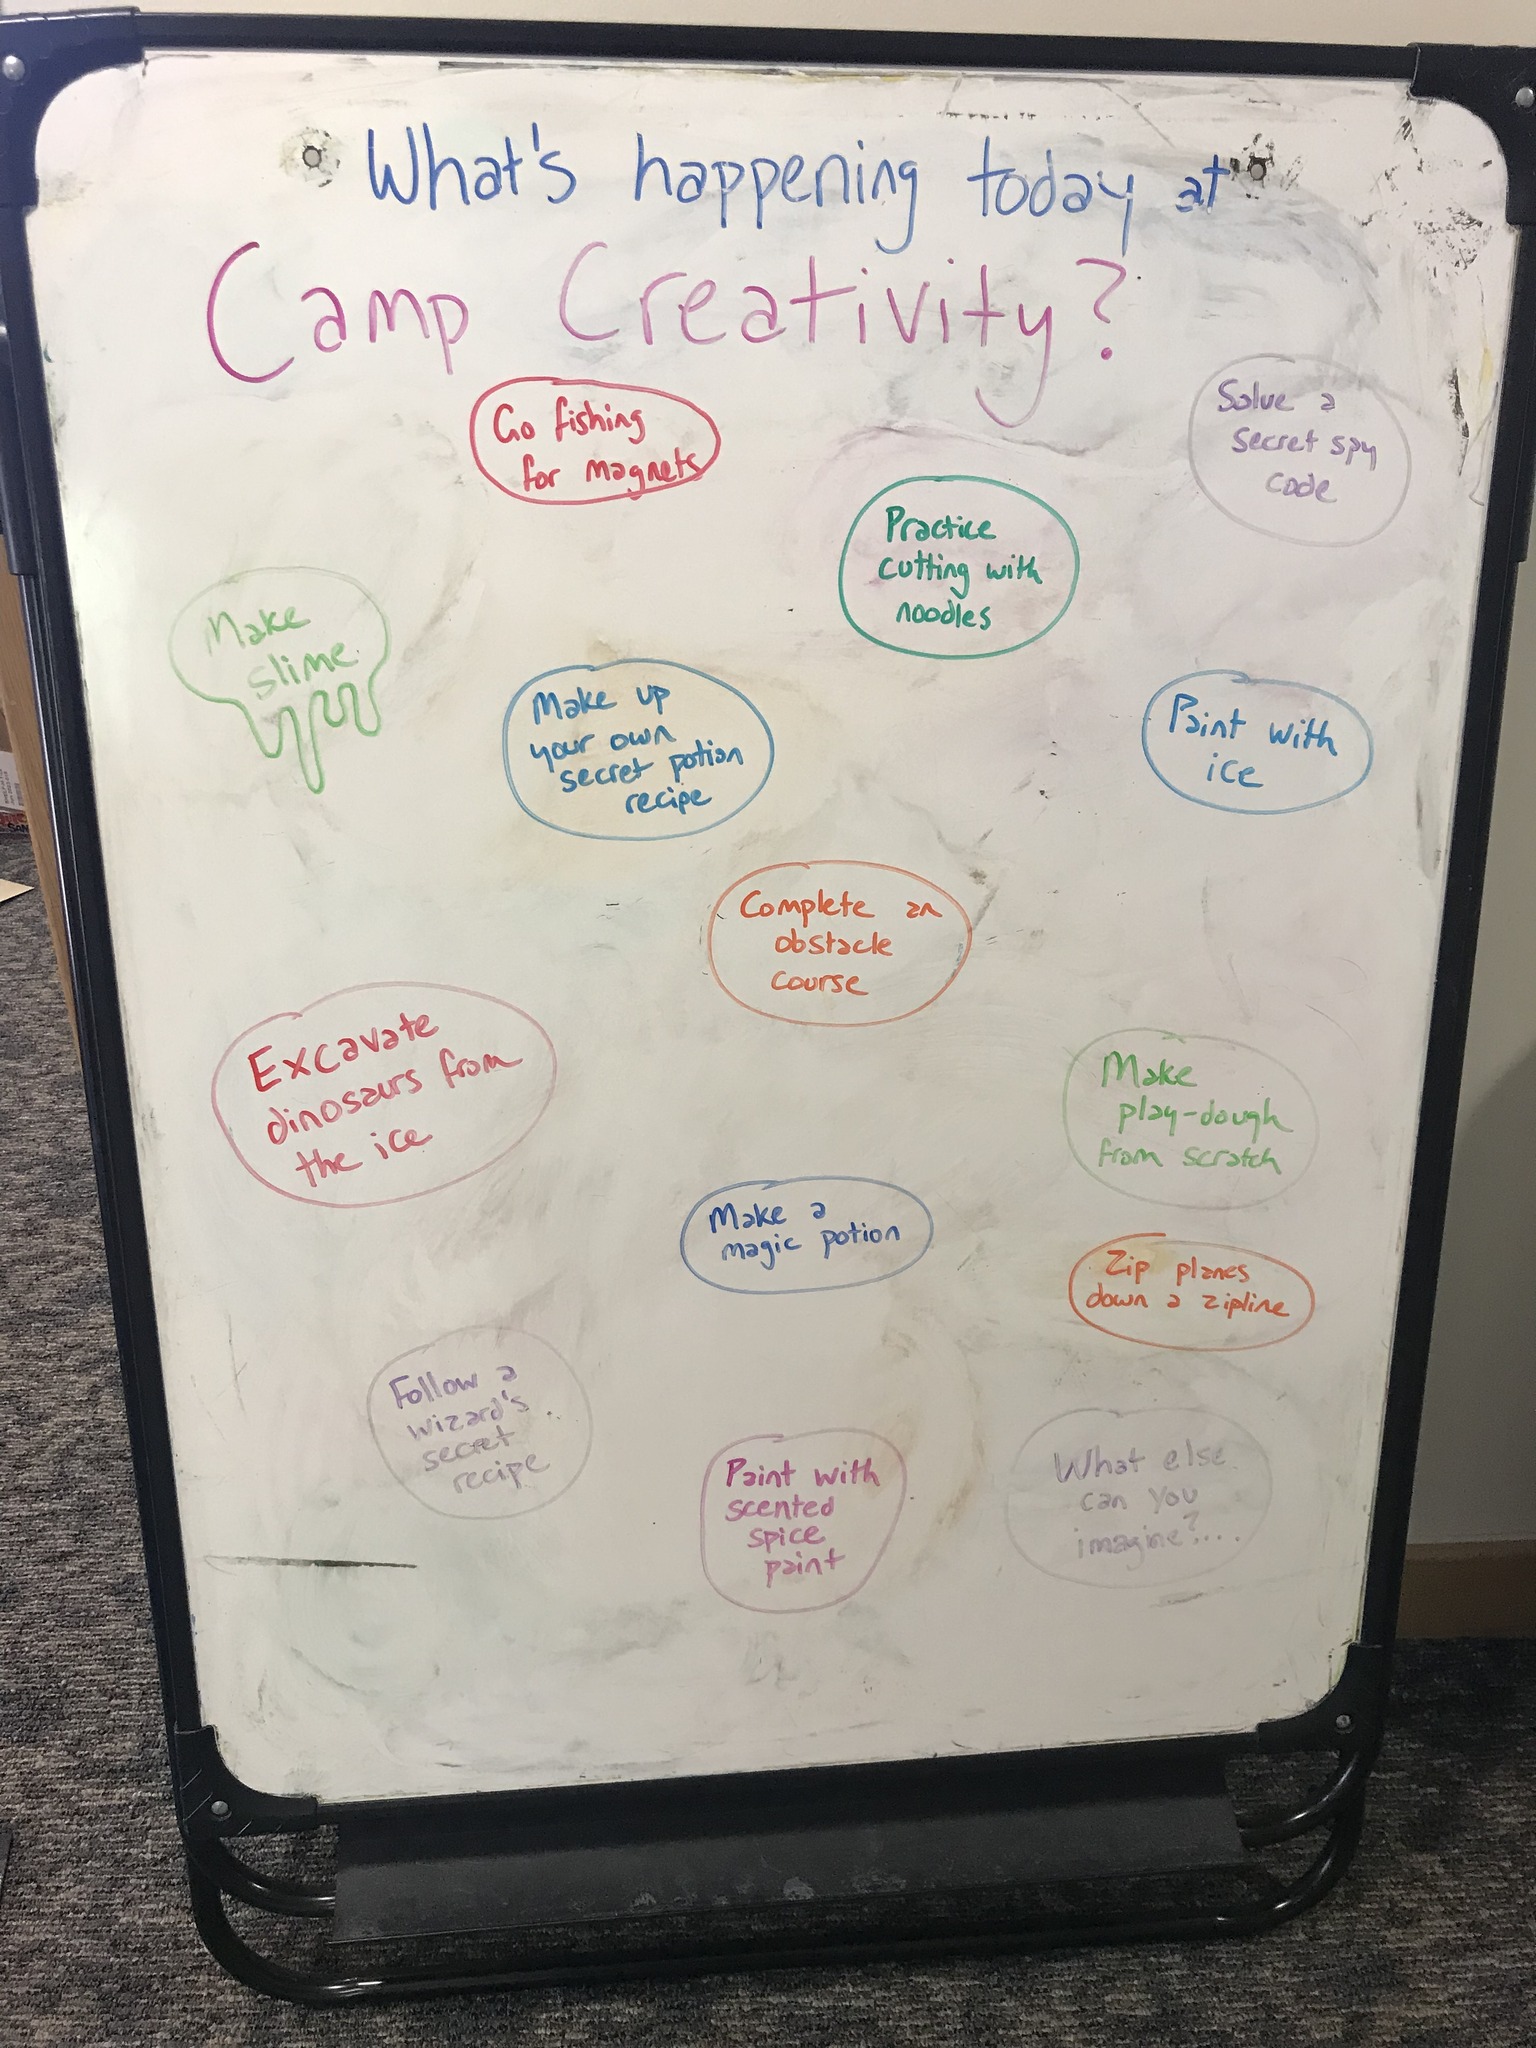 What's happening today at
Camp Creativity?
Go fishing
for magnets
Solve a
secret spy
code
Practice
cutting with
noodles
Make
slime
Make up
your own
secret potion
recipe
Paint with
ice
Complete an
obstacle
course
Excavate
dinosaurs from
the ice
Make
play-dough
from scratch
Make a
magic potion
Zip planes
down a zipline
Follow a
wizard's
secret
recipe
Paint with
scented
spice
paint
What else
can you
imagine?...